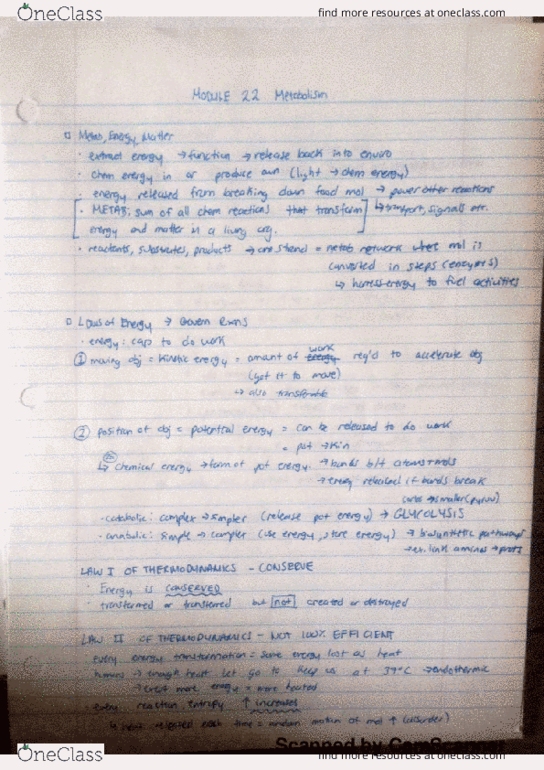 OneClass
find more resources at oneclass.com
MODULE 22 Metabolism
Metab, Energy, Matter
· extract energy → function → release back into enviro
· chem energy in or produce own (light → chem energy)
energy released from breaking down food mol → power other reactions
· METAB: sum of all chem reactions that transform ↳ transport, signals etc.
energy and matter in a living org.
· reactants, substrates, products → = metab network where mol is
converted in steps (enzymes)
↳ harness energy to fuel activities
Laws of Energy → Govern Rxns
· energy: cap to do work
① moving obj = kinetic energy = amount of work req'd to accelerate obj
(get it to move)
↳ also transferable
② position of obj = potential energy = can be released to do work
= pot → kin
↳ chemical energy → form of pot energy. → bonds b/t atoms + mols
→ energy released if bonds break
carbs → smaller (pyruv)
· catabolic: complex → simpler (release pot energy) → GLYCOLYSIS
· anabolic: simple → complex (use energy, store energy) → biosynthetic pathways
→ ex. link aminos → prots
LAW I OF THERMODYNAMICS - CONSERVE
· Energy is CONSERVED
· transformed or transferred but not created or destroyed
LAW II OF THERMODYNAMICS - NOT 100% EFFICIENT
· every energy transformation = some energy lost as heat
humans → enough heat let go to keep us at 37°C → endothermic
→ more energy = more heated
· every reaction entropy ↑ increases
↳ heat each time = random motion of mol ↑ (disorder)
Scanned by CamScanner
OneClass
find more resources at oneclass.com